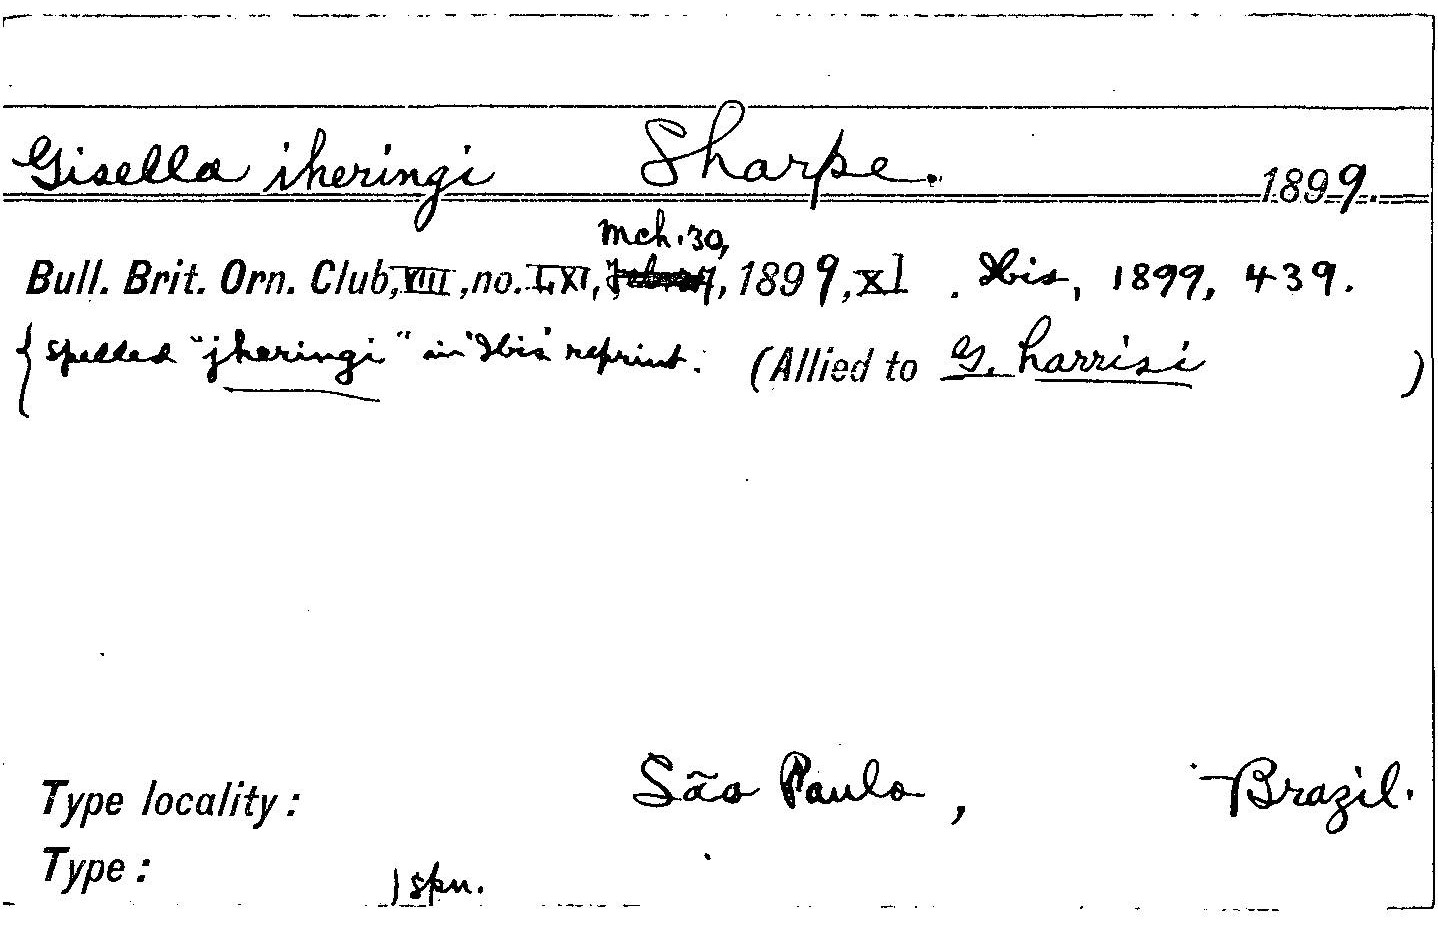 Gisella iheringi Sharpe. 1899.
Mch. 30,
Bull. Brit. Orn. Club, VIII, no. LXI, 1899, xl . Ibis, 1899, 439.
{ spelled "jheringi" in 'Ibis' reprint. (Allied to G. harrisi )
Type locality: São Paulo, Brazil.
Type: 1 spn.